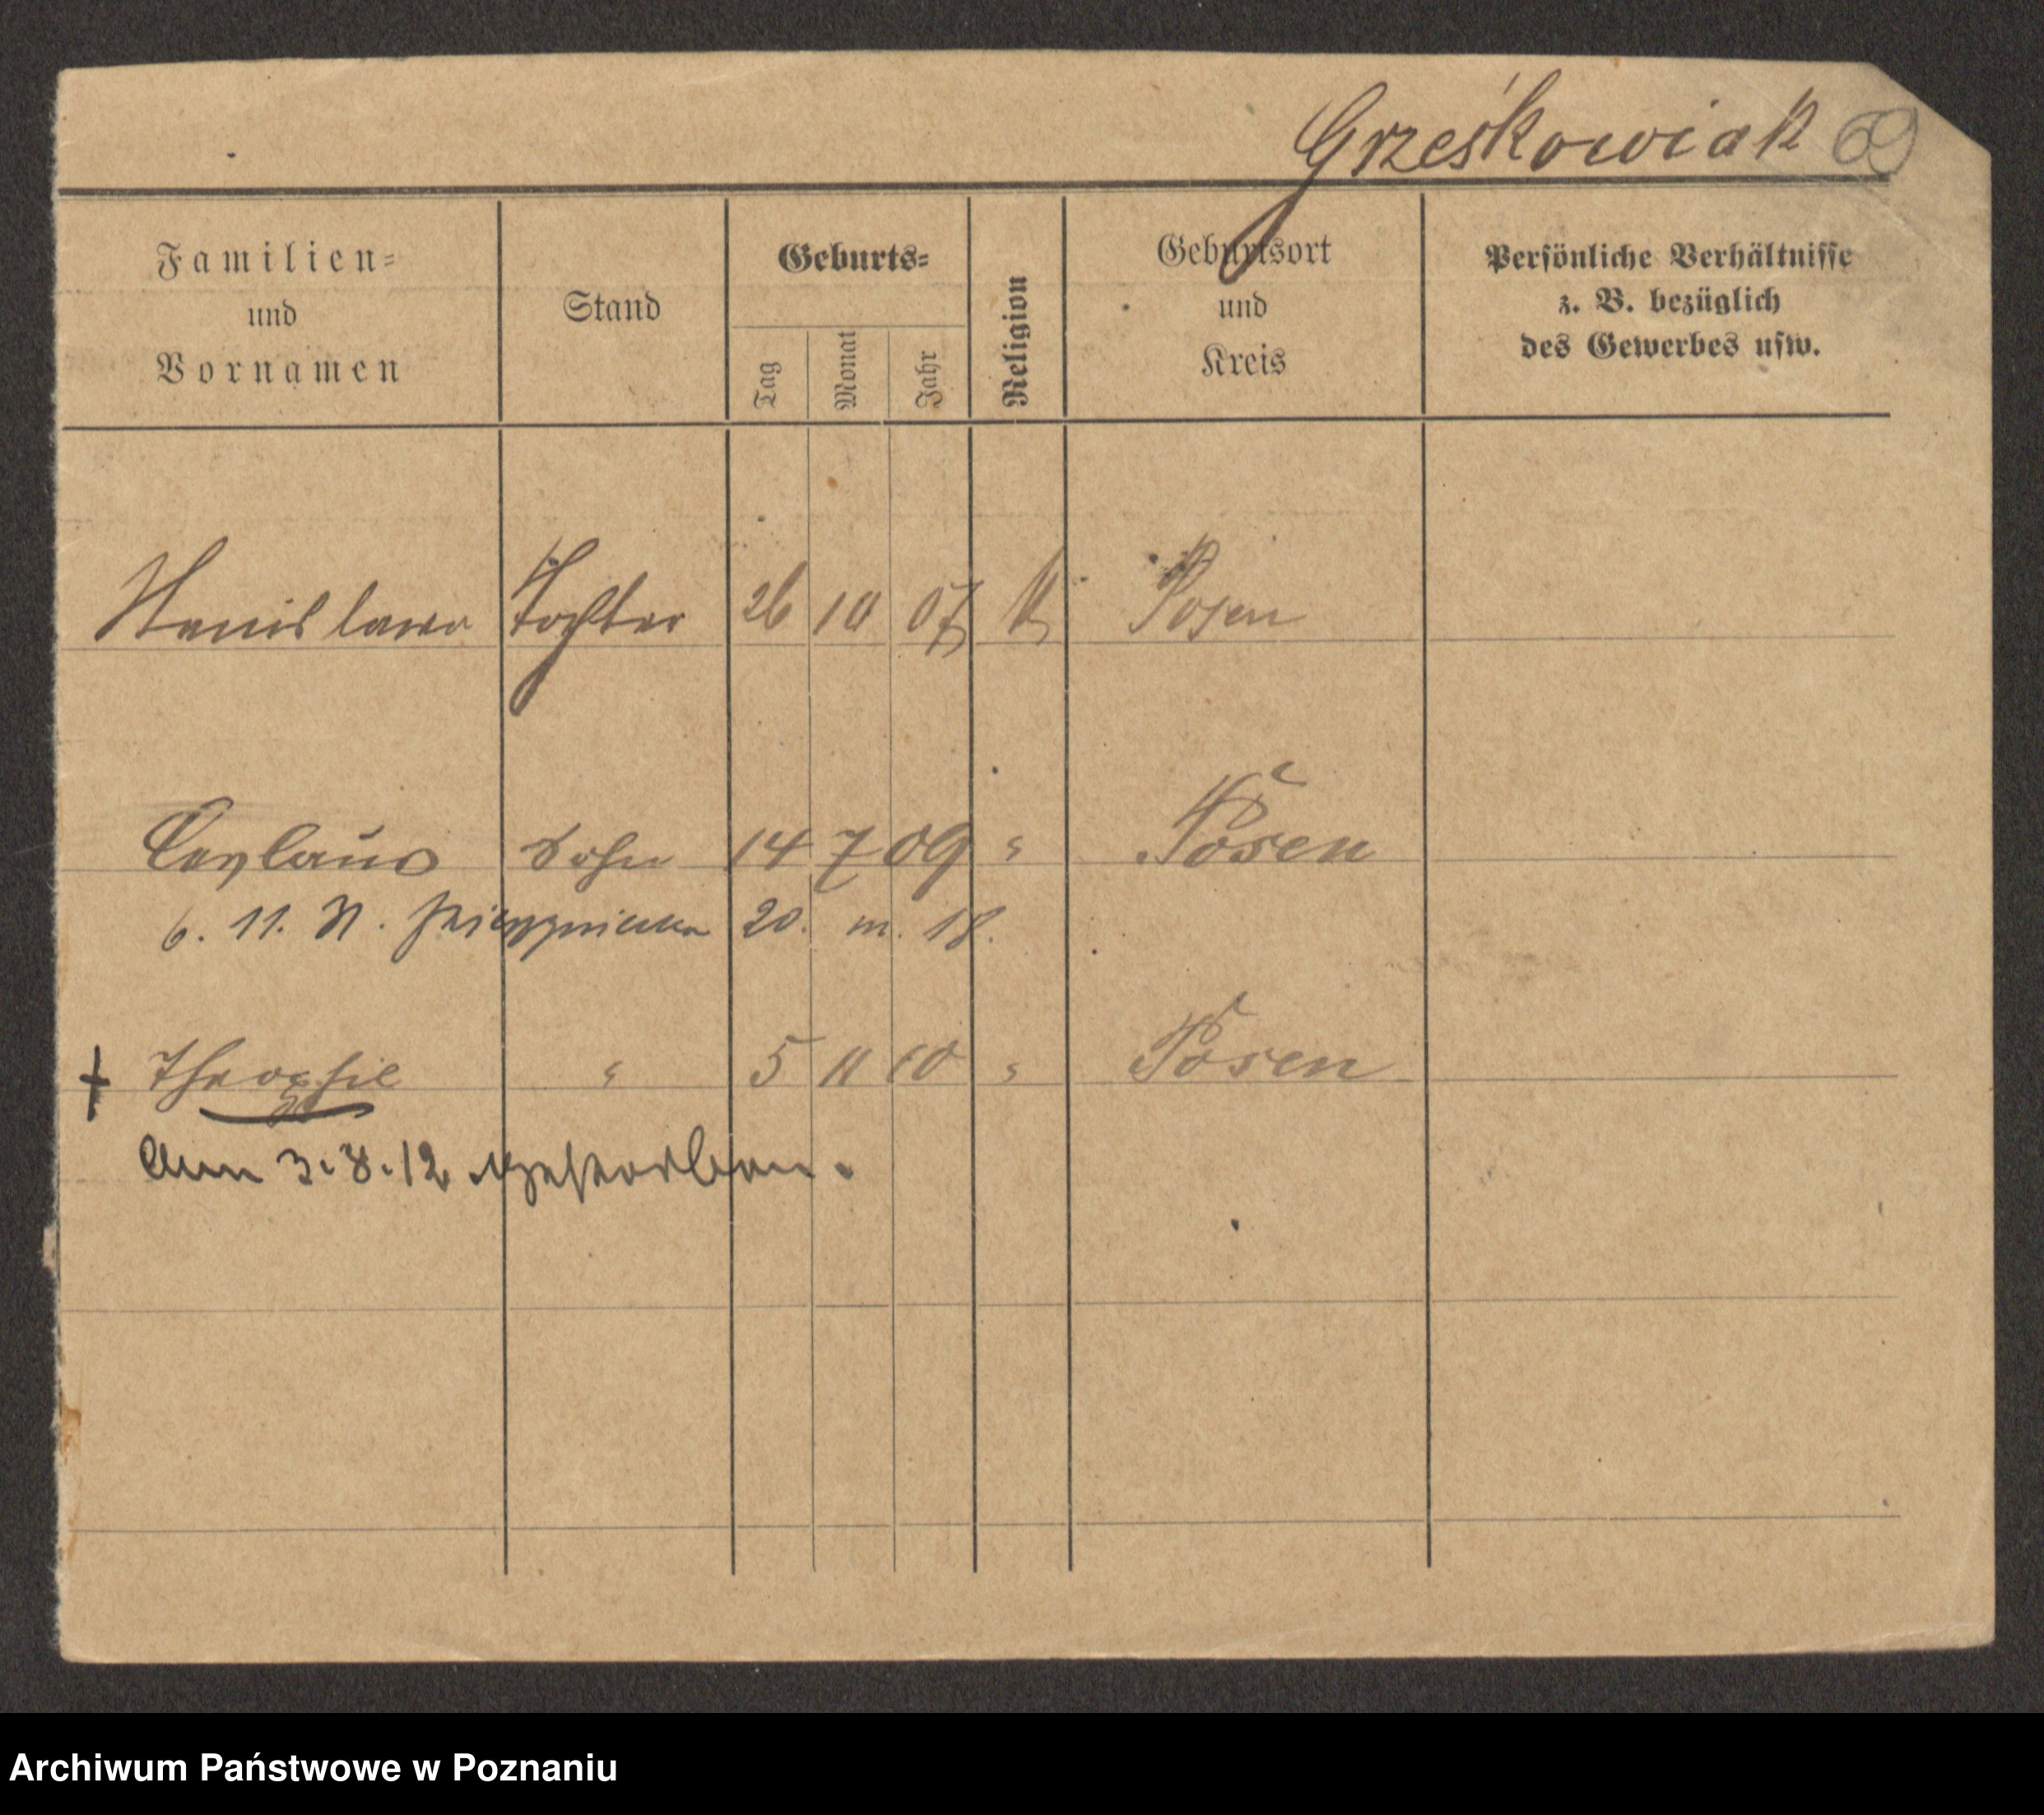 Grześkowiak 69
Familien=
und
Vornamen
Stand
Geburts=
Tag
Monat
Jahr
Religion
Geburtsort
und
Kreis
Persönliche Verhältnisse
z. B. bezüglich
des Gewerbes usw.
Stanislawa Tochter 26 10 07 K Posen
Ceslaus Sohn 14 7 09 " Posen
6. 11. N. 20. m. 18.
† Theophil " 5 11 10 " Posen
Am 3.8.12 gestorben.
Archiwum Państwowe w Poznaniu